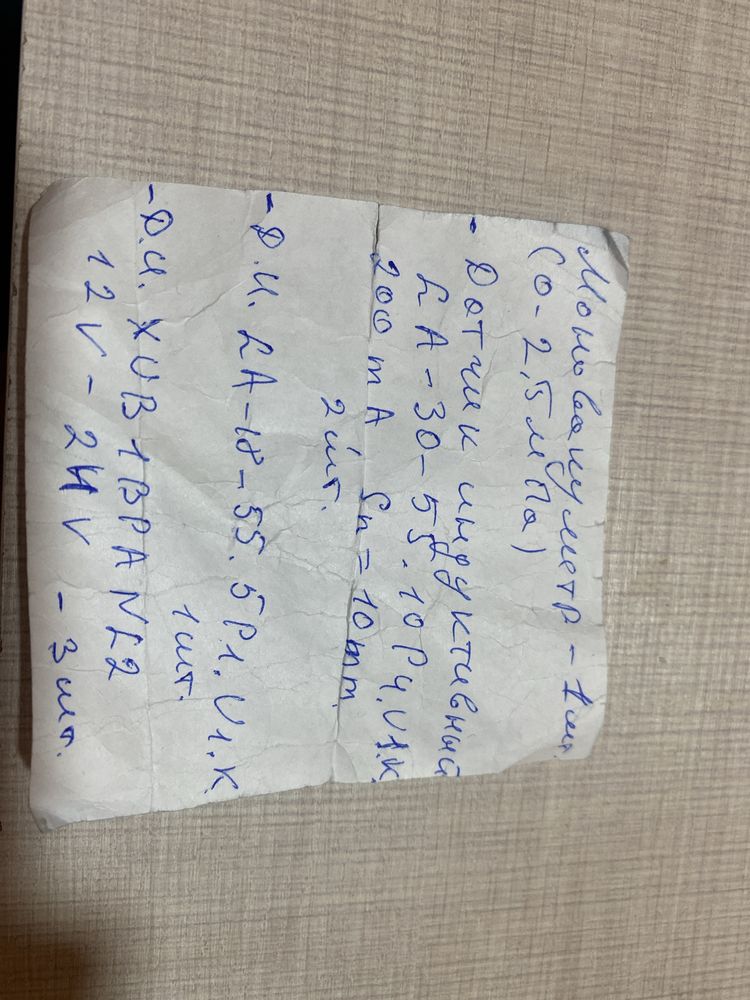 Мановакууметр - 1 шт.
(0-2,5 мПа)
- Датчик индуктивный
LA-30-55.10P4.U1.K
200 mA Sn=10mm.
2 шт.
- Д.И. LA-18-55.5P1.U1.K
1 шт.
- Д.И. XUB1BPANL2
12V-24V - 3 шт.